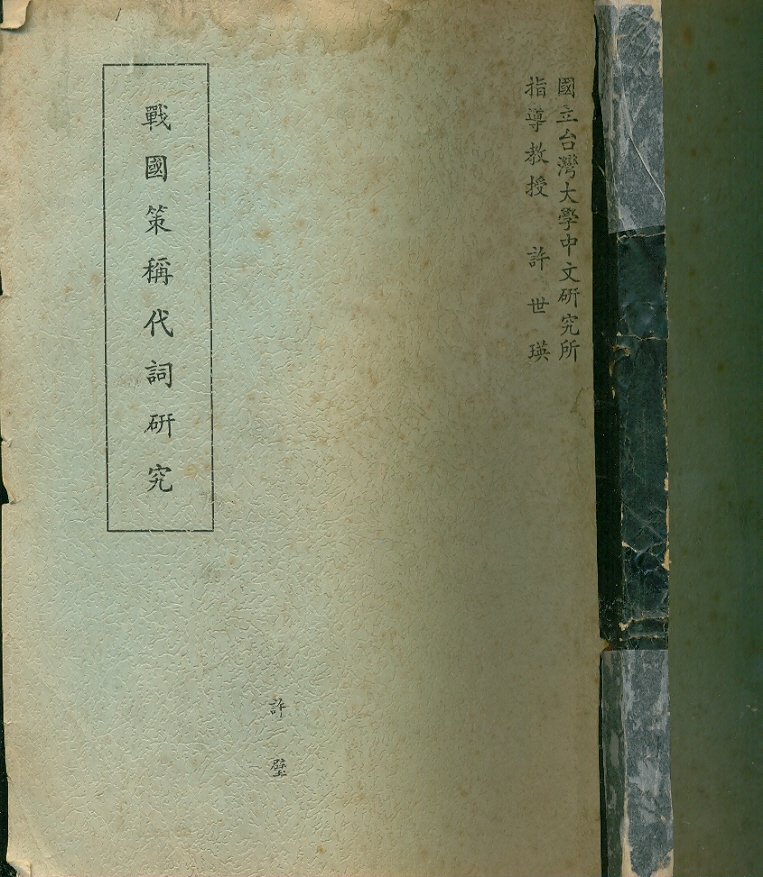 國立台灣大學中文研究所
指導教授 許世瑛
戰國策稱代詞研究
許璧